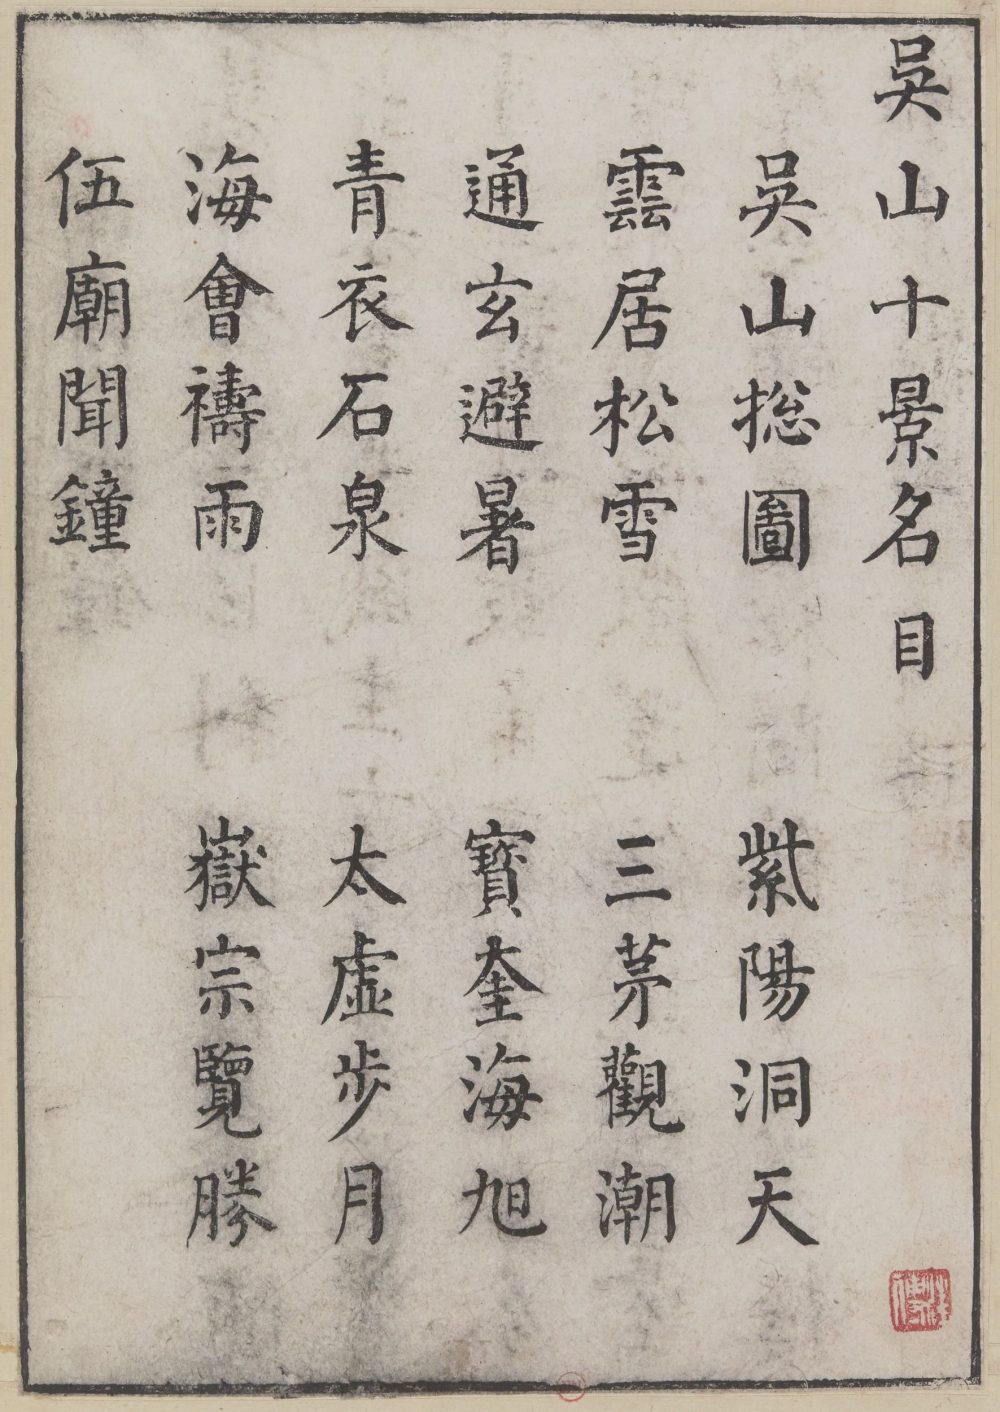 吳山十景名目
吳山揔圖 紫陽洞天
雲居松雪 三茅觀潮
通玄避暑 寶奎海旭
青衣石泉 太虛步月
海會禱雨 嶽宗覽勝
伍廟聞鐘